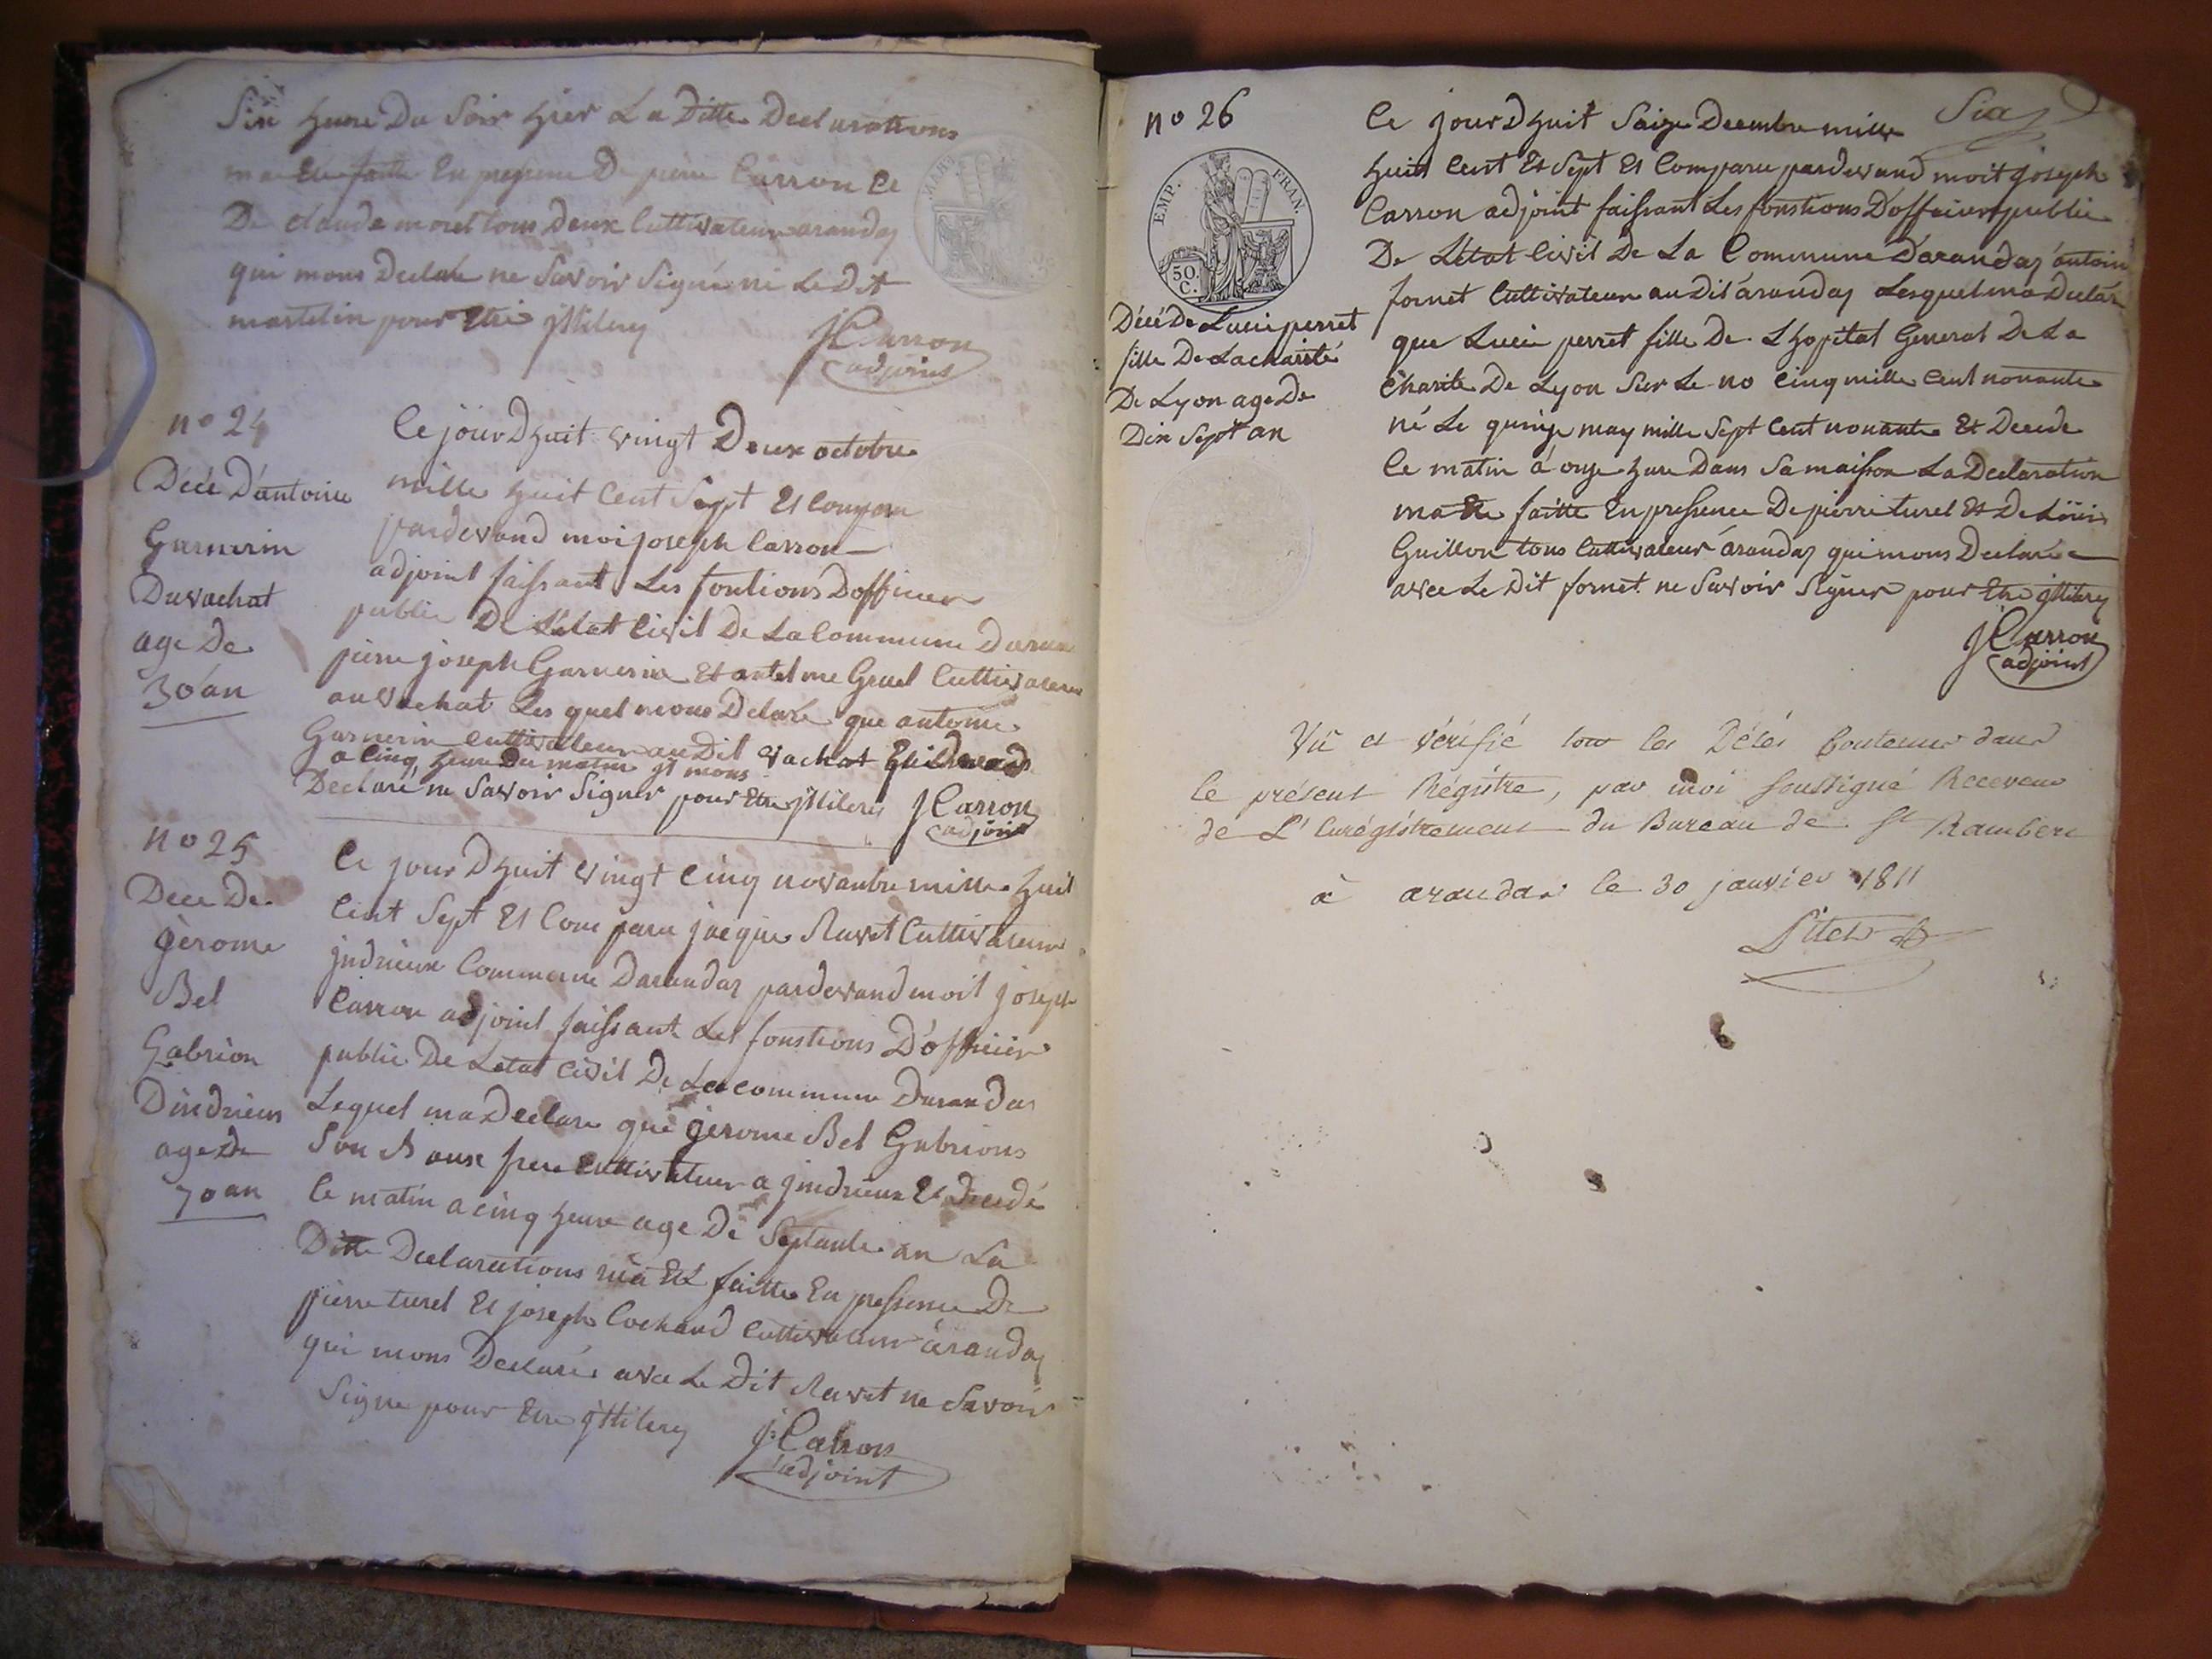 Sixe heure Du Soir hier La Ditte Declarations
ma Ete faitte En presence De pierre Carron Et
De claude moret tous Deux Cultivateur arandas
qui mons Declaré ne Savoir Signé ni Le Dit
martelin pour Etre
J Carron
adjoint
no 24
Décé D'antoine
Garnerin
Du vachat
age De
30 an
Ce jour Dhuit vingt Deux octobre
mille huit Cent Sept Et Comparu
pardevand moi joseph Carron
adjoint faissant Les fontions Dofficier
public De L'état Civil De La Commune Daran
pierre joseph Garnerin Et antelme Gruel Cultivateur
au vachat Les quel mons Delaré que antoine
Garnerin cultivateur au Dit vachat
a Cinq heure Du matin et mons
Declaré ne Savoir Signer pour Etre
J Carron
adjoint
no 25
Dece De
gèrome
Bel
Gabrion
Dindrieux
age De
70 an
Ce jour Dhuit vingt Cinq novanbre mille huit
Cent Sept Et Comparu jacque Ravet Cultivateur
jndrieux Commune Darandas pardevand moit joseph
Carron adjoint faissant Les fonstions D'officier
public De L'etat Civil De La commune Darandas
Lequel ma Declare que gerome Bel Gabrions
Son Baux frere Cultivateur a jndrieux Et Decedé
Ce matin a cinq heure age De Septante an La
Ditte Declarations m'a Eté faitte En pressence De
pierre turel Et joseph Cochand Cultivateur arandas
qui mons Declaré avec Le Dit Ravet ne Savoir
Signe pour Etre
j: Carron
adjoint
Six
no 26
EMP. FRAN.
50.
C.
Décé De Lucie perret
fille De La charité
De Lyon age De
Dix Sept an
Ce jour Dhuit Saize Decembre mille
huit Cent Et Sept Et Comparu pardevand moit joseph
Carron adjoint faissant Les fonstions D'officier public
De L'état Civil De La Commune D'arandas antoin
fornet Cultivateur au Dit arandas Lesquel ma Declar
que Lucie perret fille De L'hopital General De La
Charite De Lyon Sur Le no Cinq mille Cent nonante
né Le quinze may mille Sept Cent nonante Et Decede
Ce matin á onze hure Dans Sa maisson La Declaration
ma Ete faitte En pressence De pierre turel Et De Loüis
Guillon tous Cultivateur arandas qui mons Declaré
avec Le Dit fornet ne Savoir Signer pour Etre
J Carron
adjoint
Vû et vérifié tous les Décés Contenus dans
le présent Régistre, par moi soussigné Receveur
de L'Enrégistrement du Bureau de St Rambert
à arandas le 30 janvier 1811